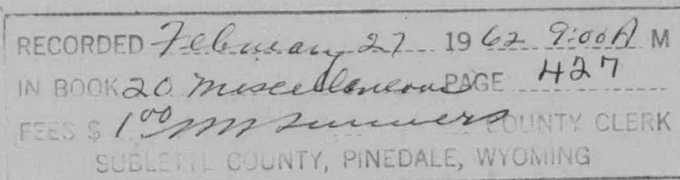 RECORDED February 27 1962 9:00 A M
IN BOOK 20 Miscellaneous PAGE 427
FEES $ 1.00 COUNTY CLERK
SUBLETTE COUNTY, PINEDALE, WYOMING